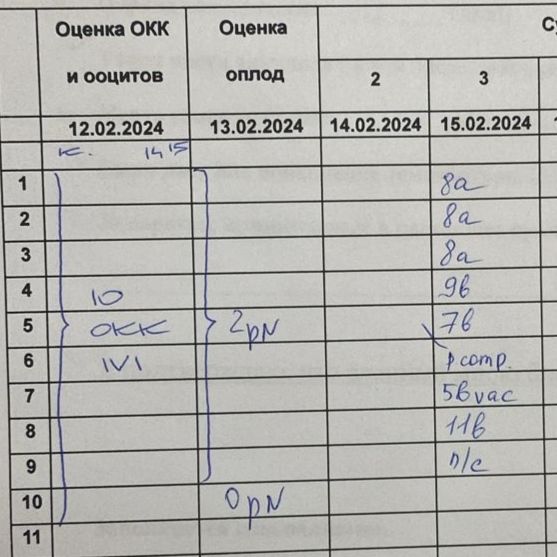 Оценка ОКК и ооцитов Оценка оплод 2 3 Су
12.02.2024 13.02.2024 14.02.2024 15.02.2024 1
к. 14 15
1 8a
2 8a
3 8a
4 10 9b
5 ОКК 2pN 7b
6 IVI pcomp
7 5bvac
8 11b
9 п/с
10 0pN
11